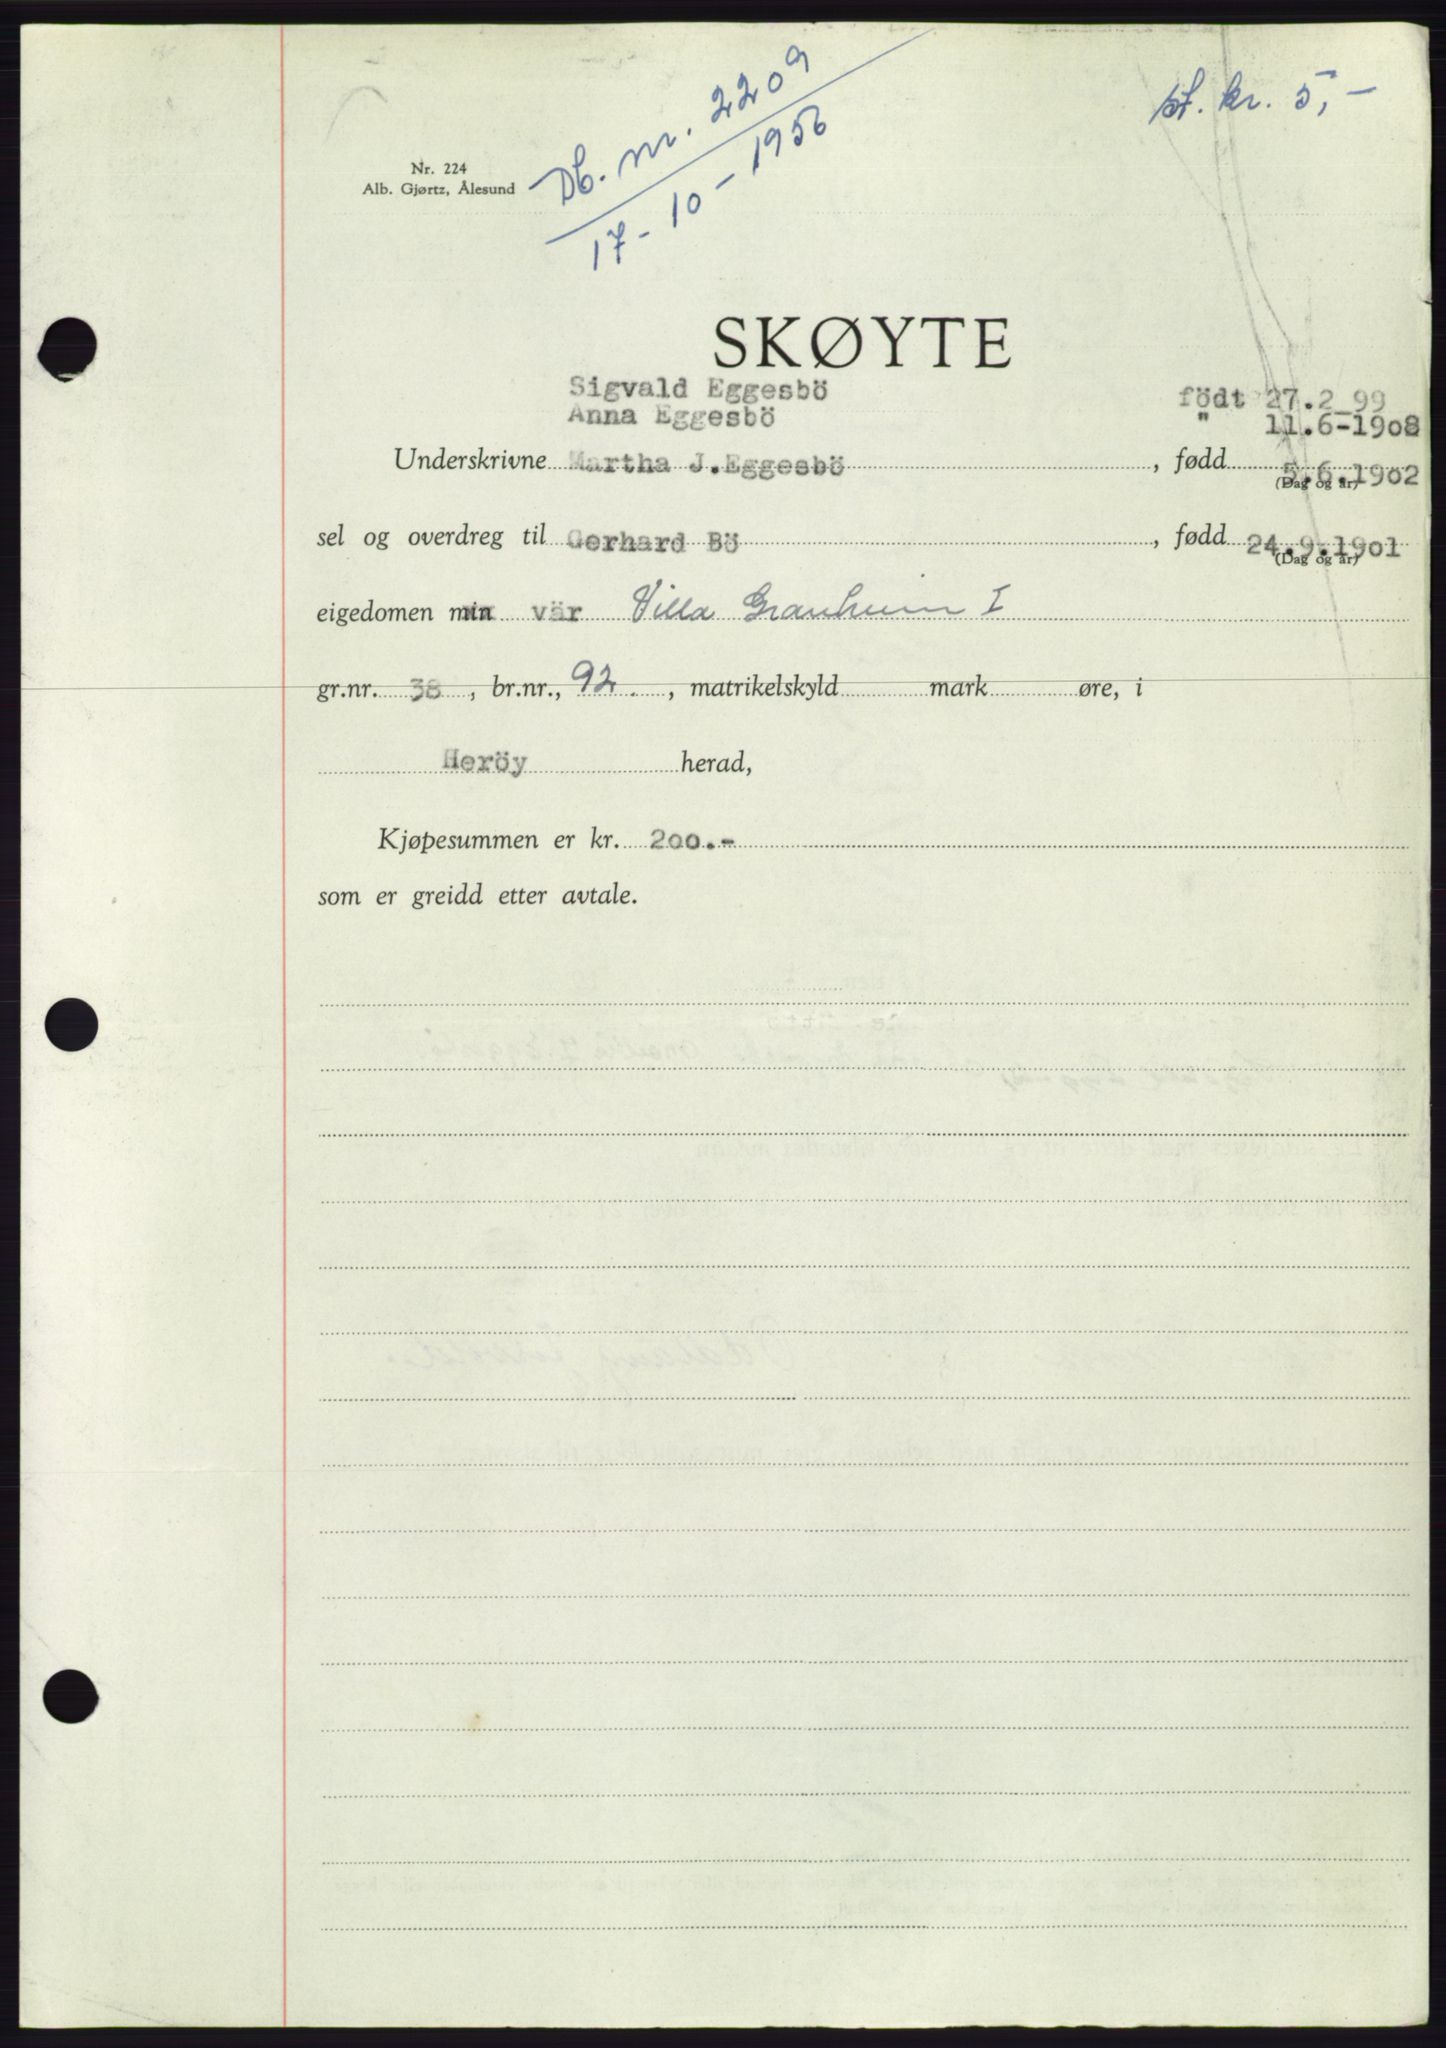 Db. nr. 2209
17-10-1956
st. kr. 5,-
Nr. 224
Alb. Gjørtz, Ålesund
SKØYTE
Sigvald Eggesbö född 27.2 99
Anna Eggesbö " 11.6-1908
Underskrivne Martha J.Eggesbö, fødd 5.6.1902
(Dag og år)
sel og overdreg til Gerhard Bö, fødd 24.9.1901
(Dag og år)
eigedomen min vär Villa Granheim I
gr.nr. 38, br.nr., 92., matrikelskyld mark øre, i
Heröy herad,
Kjøpesummen er kr. 200.-
som er greidd etter avtale.